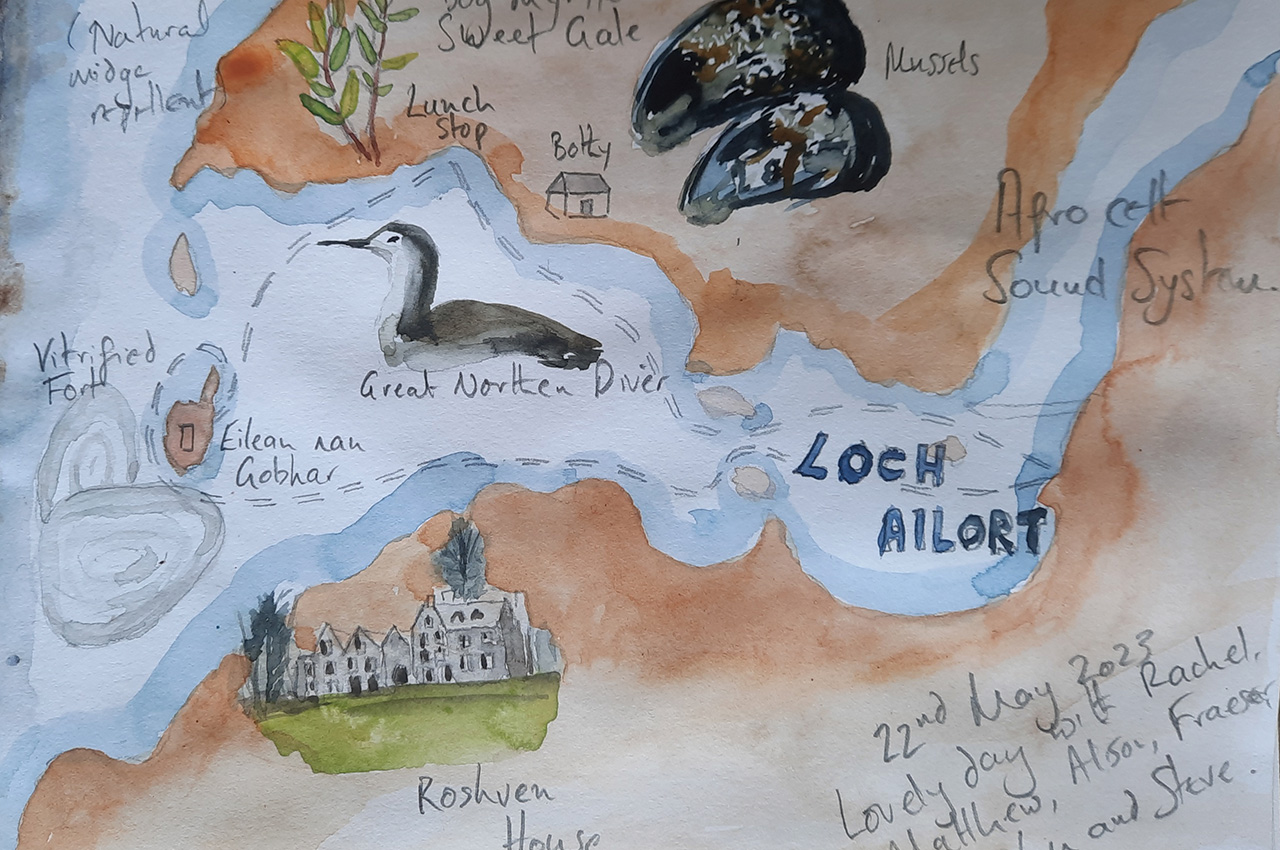 (Natural
midge
repellent)
Sweet Gale
Lunch
stop
Bothy
Mussels
Afro celt
Sound System.
Vitrified
Fort
Great Northern Diver
Eilean nan
Gobhar
LOCH
AILORT
Roshven
House
22nd May 2023
Lovely day with Rachel,
Matthew, Alison, Fraeser
and Steve.